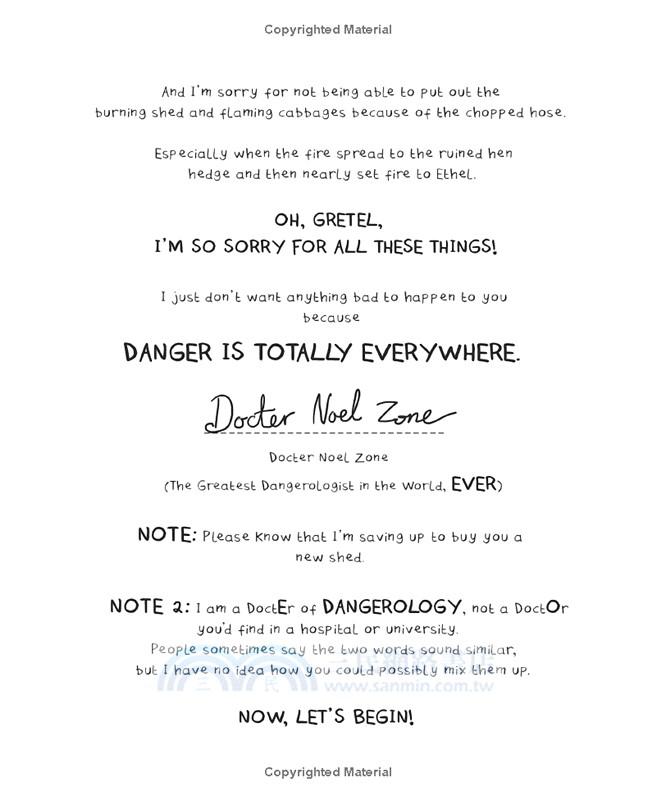 Copyrighted Material
And I'm sorry for not being able to put out the
burning shed and flaming cabbages because of the chopped hose.
Especially when the fire spread to the ruined hen
hedge and then nearly set fire to Ethel.
OH, GRETEL,
I'M SO SORRY FOR ALL THESE THINGS!
I just don't want anything bad to happen to you
because
DANGER IS TOTALLY EVERYWHERE.
Docter Noel Zone
Docter Noel Zone
(The Greatest Dangerologist in the World, EVER)
NOTE: Please know that I'm saving up to buy you a
new shed.
NOTE 2: I am a DoctEr of DANGEROLOGY, not a DoctOr
you'd find in a hospital or university.
People sometimes say the two words sound similar,
but I have no idea how you could possibly mix them up.
三民網路書店
三 民
www.sanmin.com.tw
NOW, LET'S BEGIN!
Copyrighted Material